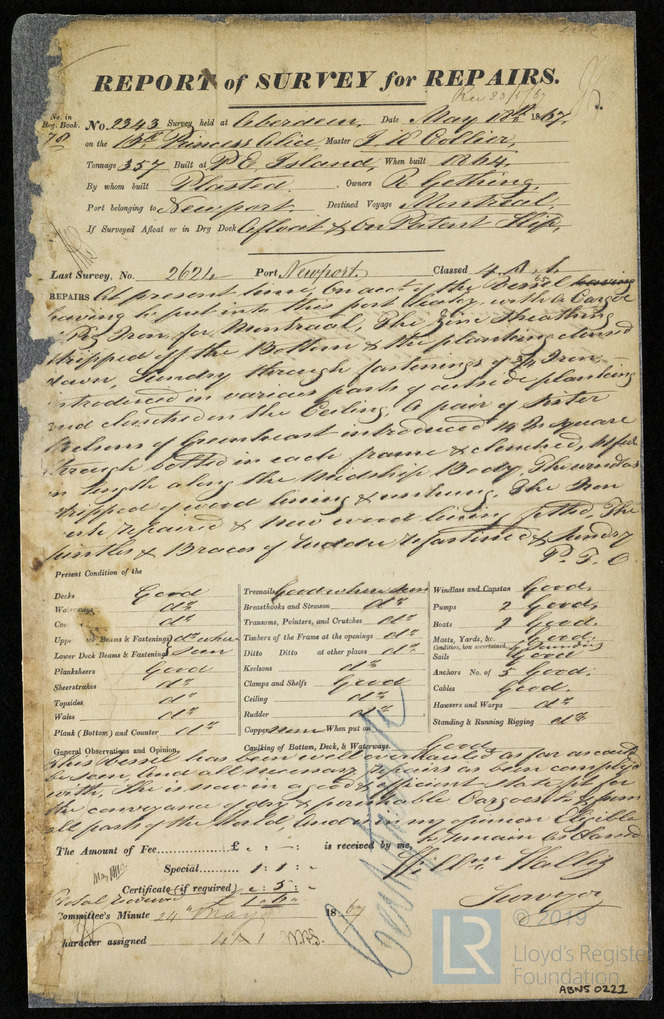 REPORT of SURVEY for REPAIRS.
Rec 23/5/67
No. in
Reg. Book.
No. 2343 Survey held at Aberdeen, Date May 18th 1867,
70 on the Bk Princess Alice, Master J R Collier,
Tonnage 357 Built at P E Island, When built 1864,
By whom built Owners R Gething,
Port belonging to Newport Destined Voyage Montreal,
If Surveyed Afloat or in Dry Dock Afloat & On Patent Slip,
Last Survey, No. 2624 Port Newport, Classed 4 A 1.
REPAIRS At present time, On acct of the Vessel having
having to put into this port leaky, with a Cargoe
Pig Iron, for Montreal, The Zinc Sheathing
stripped off the Bottom & the planking
down, Sundry through fastenings of 3/4 Iron,
introduced in various parts of outside planking
and clenched on the Ceiling, A pair of Sister
Kelsons of Greenheart introduced 14 In square
through bolted in each frame & clenched,
in length along the Midship Body, The windlass
stripped of wood lining & unhung, The Iron
repaired & New wood lining fitted The
Pintles & Braces of Rudder refastened & Sundry
P. T. O
Present Condition of the
Decks Good
Waterways do
Co
Upper Deck Beams & Fastenings do where
Lower Deck Beams & Fastenings Seen
Planksheers Good
Sheerstrakes do
Topsides do
Wales do
Plank (Bottom) and Counter do
Treenails Good where seen
Breasthooks and Stemson do
Transoms, Pointers, and Crutches do
Timbers of the Frame at the openings do
Ditto Ditto at other places do
Keelsons do
Clamps and Shelfs Good
Ceiling do
Rudder do
Copper None When put on
Caulking of Bottom, Deck, & Waterways. Good,
Windlass and Capstan Good,
Pumps 2 Good,
Boats 2 Good,
Masts, Yards, &c. Good.
Condition, how ascertained, by Sounding
Sails Good
Anchors No. of 5 Good.
Cables Good.
Hawsers and Warps do
Standing & Running Rigging do
General Observations and Opinion,
This Vessel has been well overhauled as far as could
be seen, and all necessary repairs as been complied
with, She is now in a good & efficient state fit for
the conveyance of dry & perishable Cargoes to & from
all parts of the World And in my opinion Eligible
to remain as Classed
The Amount of Fee £ " : — : " is received by me,
Special 1 : 1 : -
Certificate (if required) " : 5 : -
Total £ 1 " 6 "
Surveyor
Committee's Minute 24th May 1867
Character assigned 4 A 1
© 2019
LR
Lloyd's Register
Foundation
ABNS 0221